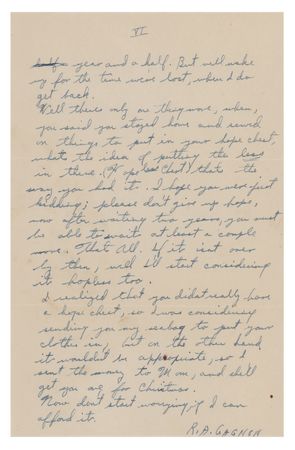 VI
half a year and a half. But will make
up for the time we've lost, when I do
get back.
Well there's only one thing more, when,
you said you stayed home and sewed
on things to put in your hope chest,
what's the idea of putting the less
in there. (Hopeless Chest) that's the
way you had it. I hope you were just
kidding; please don't give up hope,
now after waiting two years, you must
be able to wait at least a couple
more. That All. If it isn't over
by then, well I'll start considering
it hopless too.
I realized that you didn't really have
a hope chest, so I was considering
sending you my seabag to put, your
clothes in, but on the other hand
it wouldn't be appropiate, so I
sent the money to Mom, and she'll
get you one for Christmas.
Now don't start worrying, if I can
afford it.
R.A. GAGNON